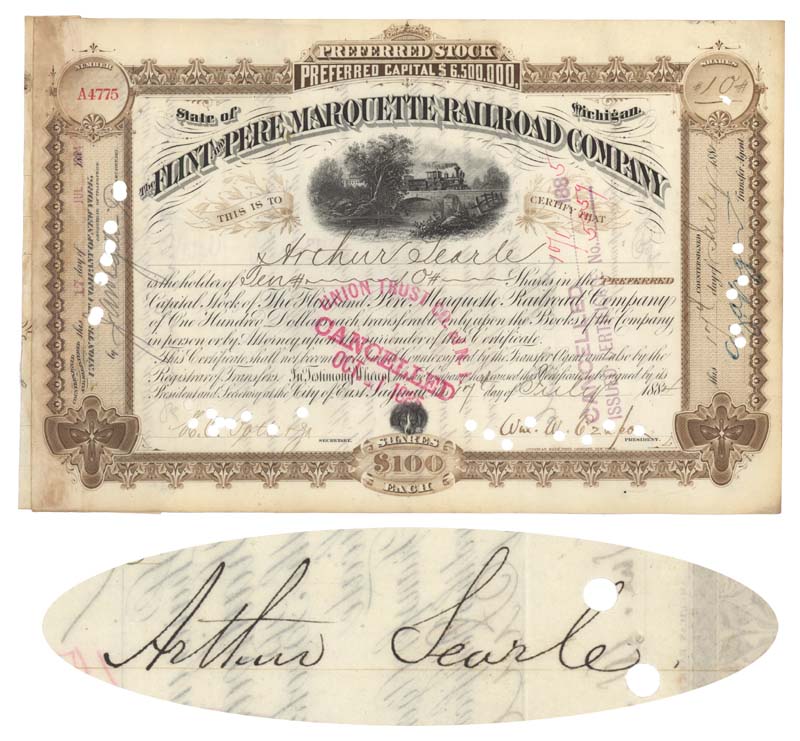 PREFERRED STOCK
PREFERRED CAPITAL $ 6,500,000.
NUMBER
A4775
SHARES
#10#
State of Michigan.
The FLINT AND PERE MARQUETTE RAILROAD COMPANY
THIS IS TO CERTIFY THAT
Arthur Searle
is the holder of Ten # 10 # Shares in the PREFERRED
Capital Stock of The Flint and Pere Marquette Railroad Company
of One Hundred Dollars each transferable only upon the Books of the Company
in person or by Attorney upon surrender of this Certificate.
This Certificate shall not become valid until countersigned by the Transfer Agent and also by the
Registrar of Transfers. In Testimony Whereof the said Company has caused this Certificate to be signed by its
President and Secretary at the City of East Saginaw this 17 day of July 1884
SECRETARY.
Wm. W. Crapo
PRESIDENT.
SHARES
$100
EACH
UNION TRUST CO. OF N.Y.
CANCELLED
OCT
CANCELLED
ISSUED CERTIFICATE No.
this 17 day of JUL
UNION TRUST COMPANY OF NEW YORK.
by
COUNTERSIGNED
this 17 day of July 1884
Transfer Agent
Arthur Searle.